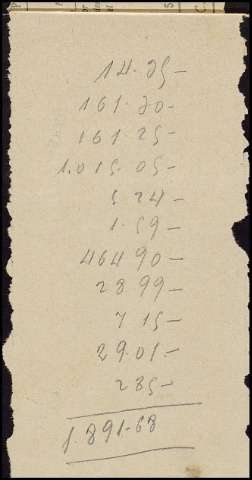 14.35-
161.30-
161 25-
1.015.05-
5 24-
1.59-
464 90-
28 99-
7 15-
29.01-
2 85-
1.891.68